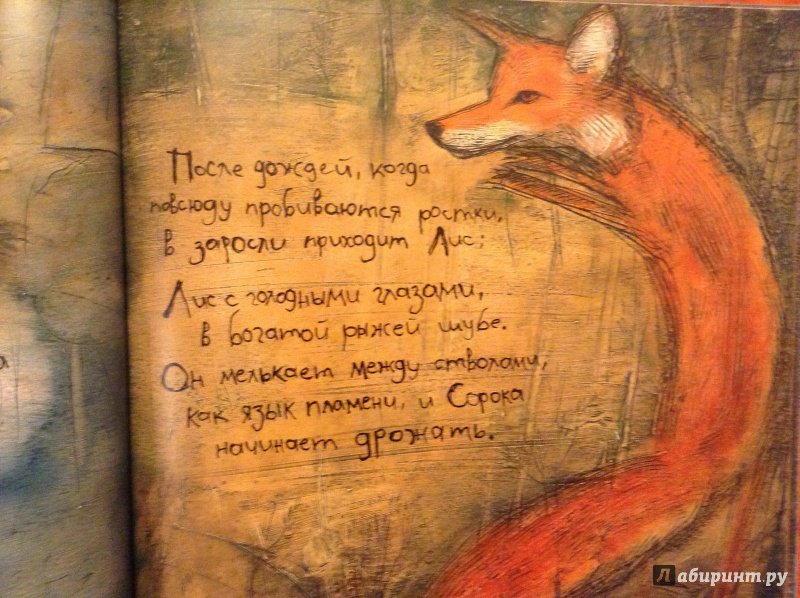 После дождей, когда
повсюду пробиваются ростки,
в заросли приходит Лис;
Лис с голодными глазами,
в богатой рыжей шубе.
Он мелькает между стволами,
как язык пламени, и Сорока
начинает дрожать.
а
Лабиринт.ру